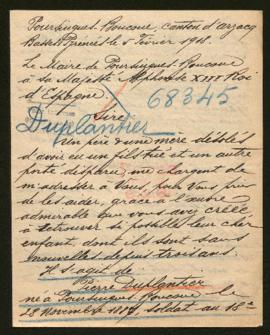 Poursiugues-Boucoue, canton d'arzacq
Basses Pyrenées le 5 Février 1918.
Le Maire de Poursiugues-Boucoue
à sa Majesté Alphonse XIII Roi
d'Espagne
68345
Sire
Duplantier
Un père & une mère désolés
d'avoir eu un fils tué et un autre
porté disparu me chargent de
m'adresser à Vous, pour Vous prier
de les aider, grâce à l'œuvre
admirable que vous avez créée
à retrouver si possible leur cher
enfant, dont ils sont sans
nouvelles depuis trois ans.
Il s'agit de
Pierre Duplantier
né à Poursiugues Boucoue le
28 Novembre soldat au 18e